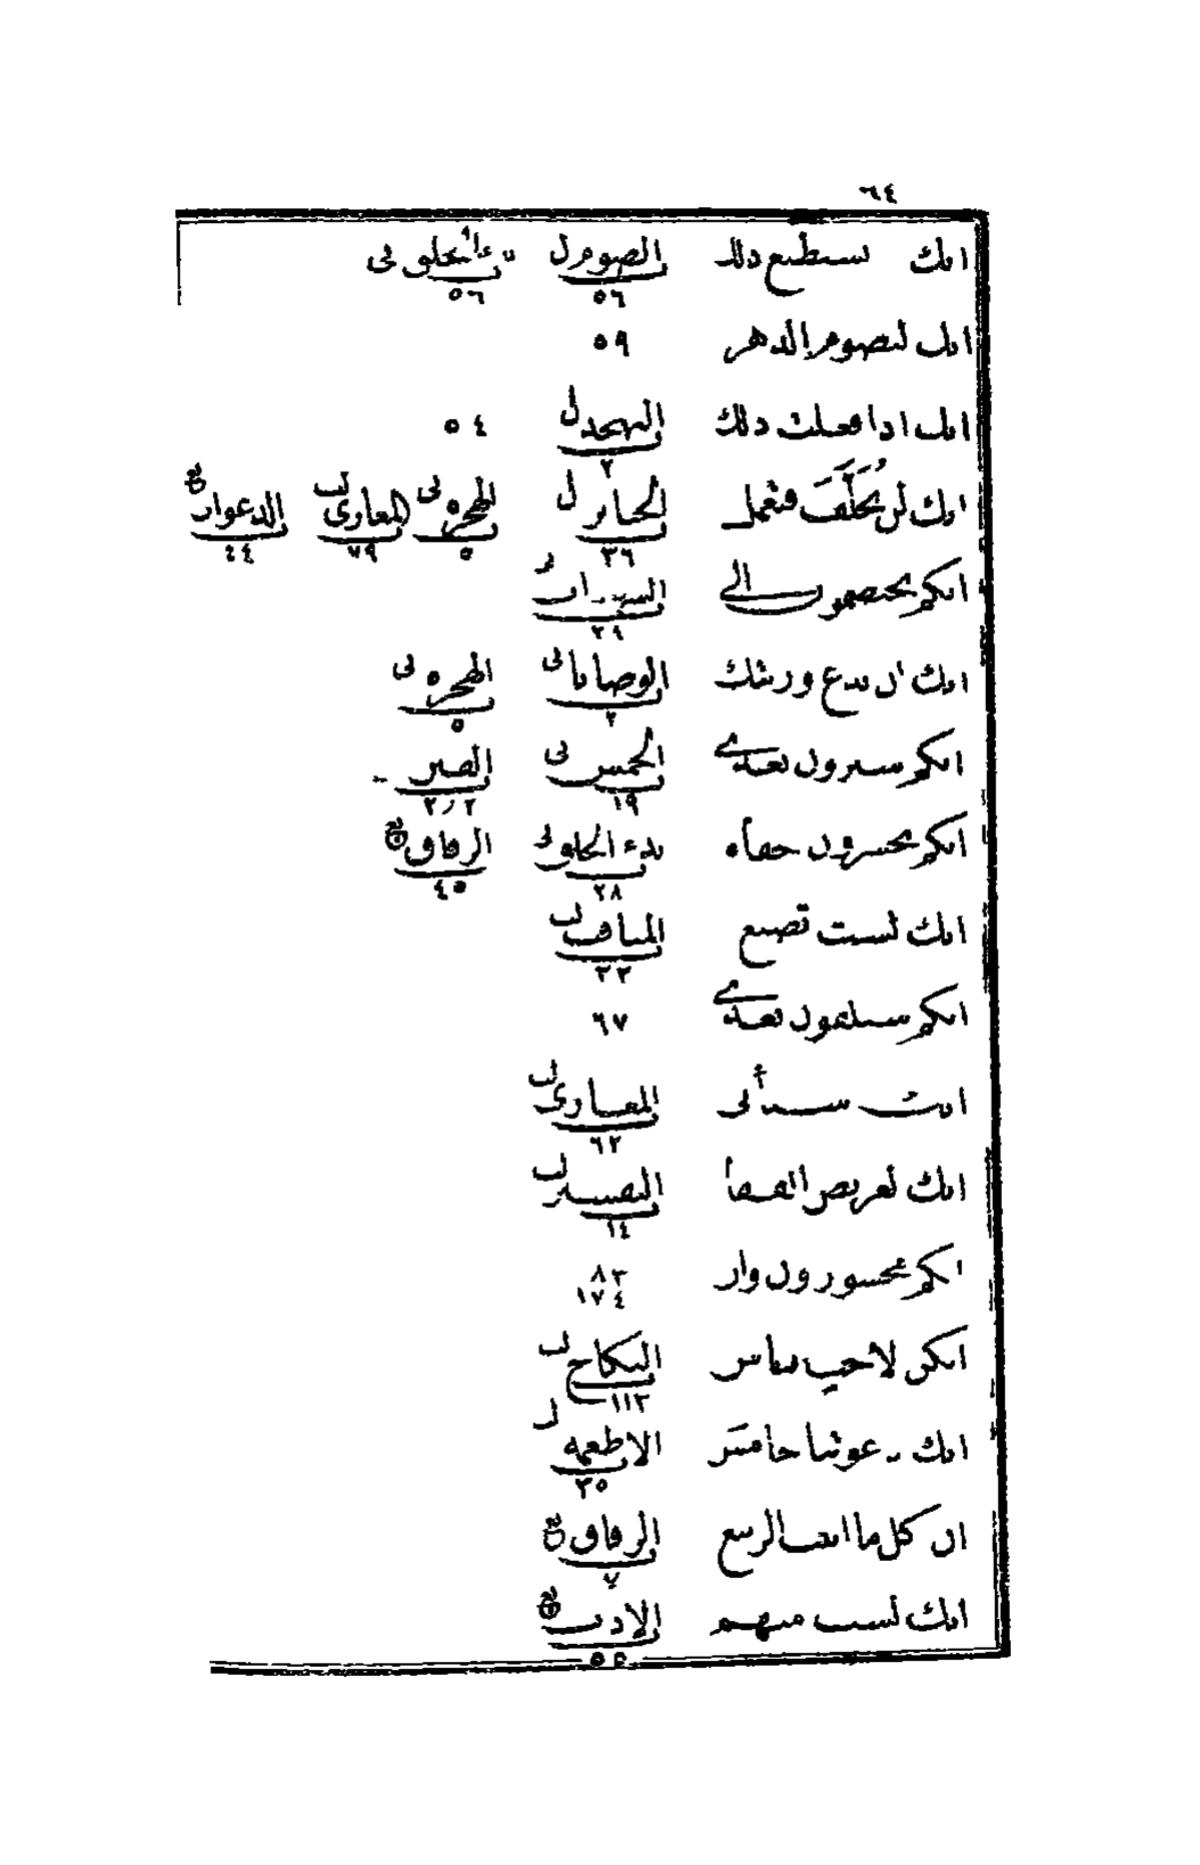 ٦٤
انك تستطيع ذلك الصوم ل ٥٦ ٥٦
انك لتصوم الدهر ٥٩
انك اذا فعلت ذلك التهجد ل ٢ ٥٤
انك لن تخلف فتعمل الجنائز ل ٣٦ الهجرة ٥ المغازى ٧٩ الدعوات ٤٤
انكم تختصمون الى الشهادات ٢٩
انك ان تدع ورثتك الوصايا ٢ الهجرة ٥
انكم سترون بعدى الخمس ١٩ الصبر ٢/٢
انكم تحشرون حفاة بدء الخلق ٢٨ الرقاق ٤٥
انك لست تصنع المناقب ٣٣
انكم ستلقون بعدى ٦٧
المغازى ٦٢
انك لعريض القفا التفسير ١٤
انكم محشورون وان ٨٣ ١٧٤
انكن لاحب الناس النكاح ١١٣
انك دعوتنا خامس الاطعمه ٣٥
ان كل ما انبت الربيع الرقاق ٧
انك لست منهم الادب ٥٢